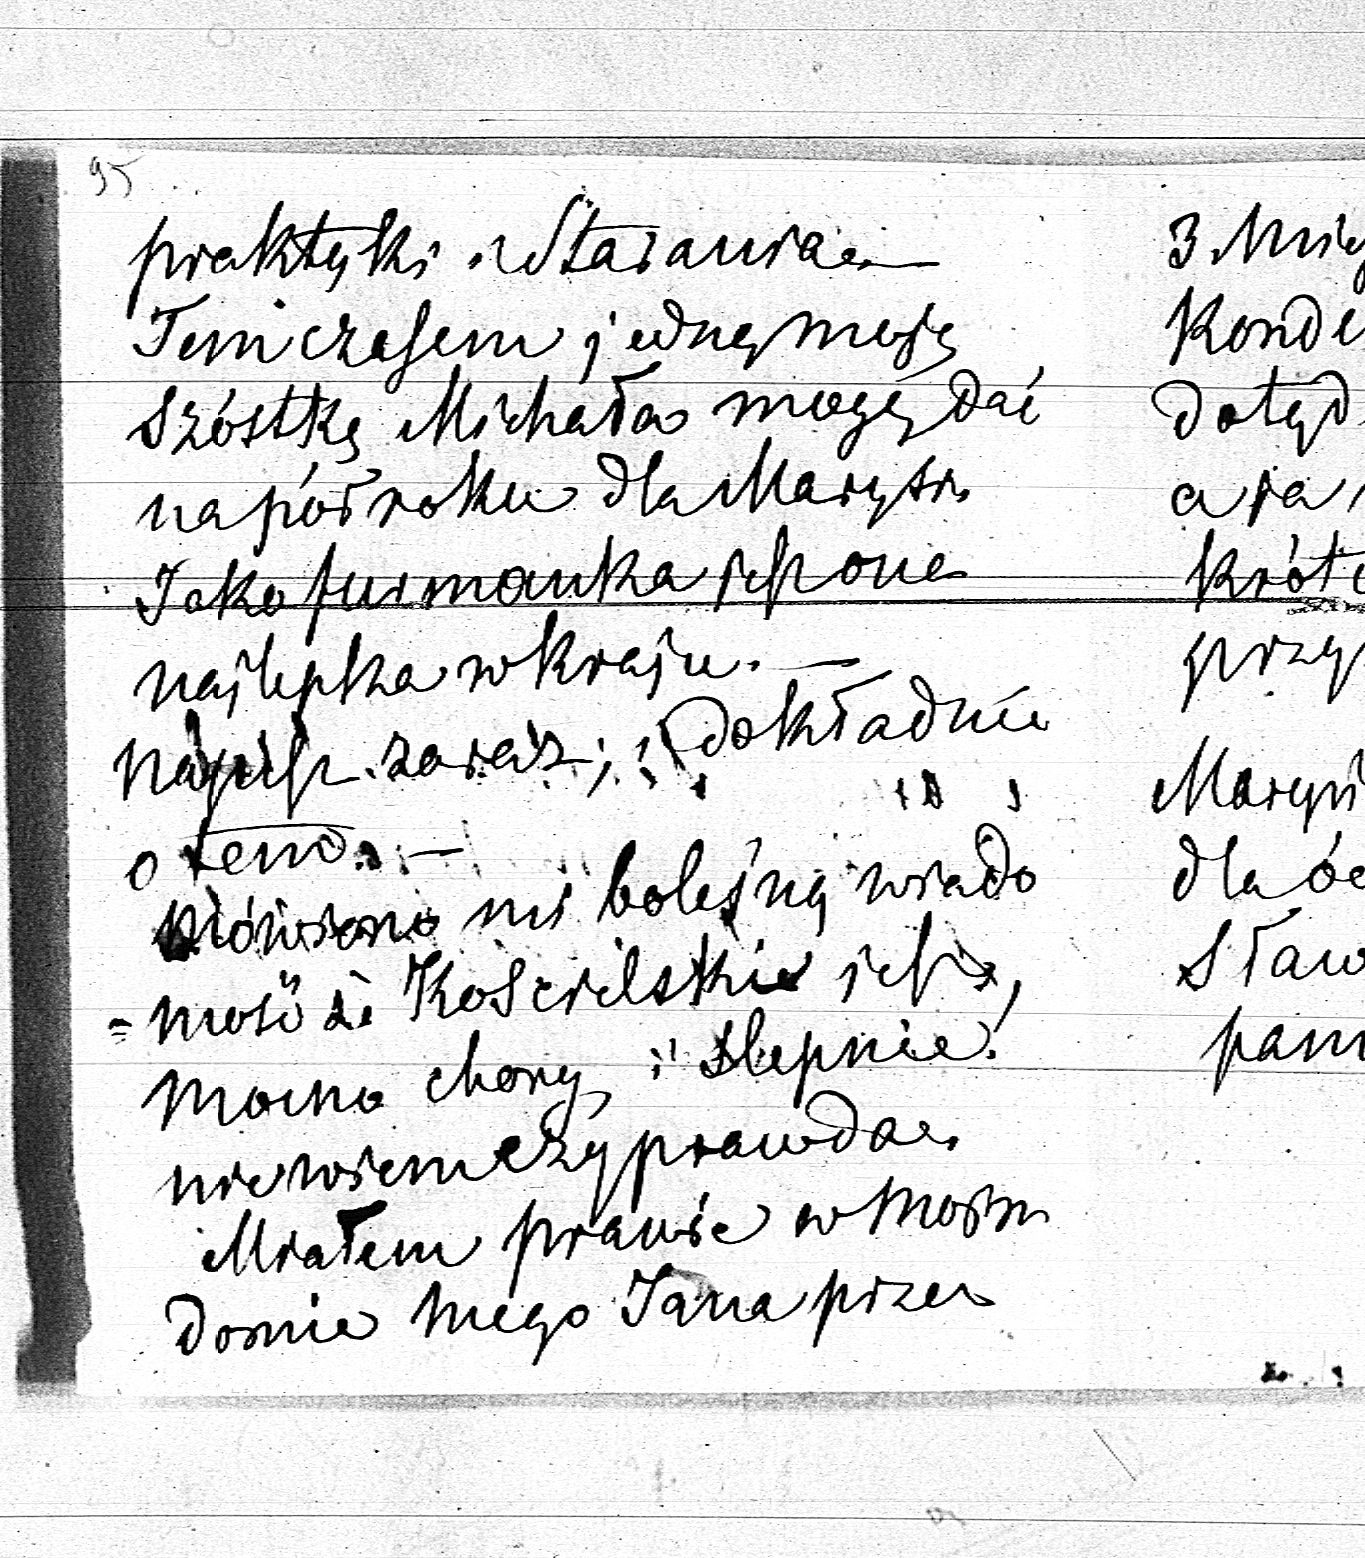 95
praktyki i Starania —
Temczasem jedną moją
Szóstkę Michała mogę dać
na pół roku dla Marysi
Jako furmanka jest one
najlepsza w kraju. —
napisz zaraz, i Dokładnie
o tem. —
Mówiono mi boleśną wiado
= mość że Kościelski jest
mocno chory i slepnie!
nie wiem czy prawda.
Miałem prawie w moim
Domie mego Jana przez
3 Mie
Konde
dotąd
a ja
króte
przy
Maryn
dla
Sław
pam